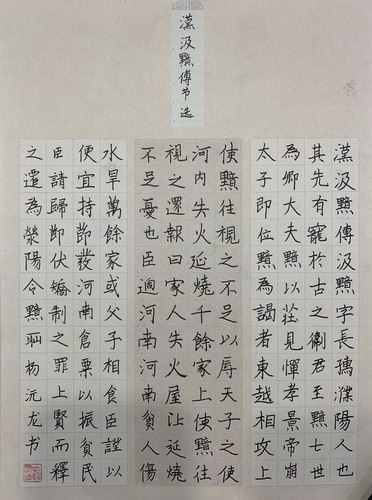 漢汲黯傳节选
漢汲黯傳汲黯字長孺濮陽人也
其先有寵於古之衛君至黯七世
為卿大夫黯以莊見憚孝景帝崩
太子即位黯為謁者東越相攻上
使黯往視之不足以辱天子之使
河内失火延燒千餘家上使黯往
視之還報曰家人失火屋比延燒
不足憂也臣過河南河南貧人傷
水旱萬餘家或父子相食臣謹以
便宜持節發河南倉粟以振貧民
臣請歸節伏矯制之罪上賢而釋
之遷為滎陽令黯耻杨沅龙书